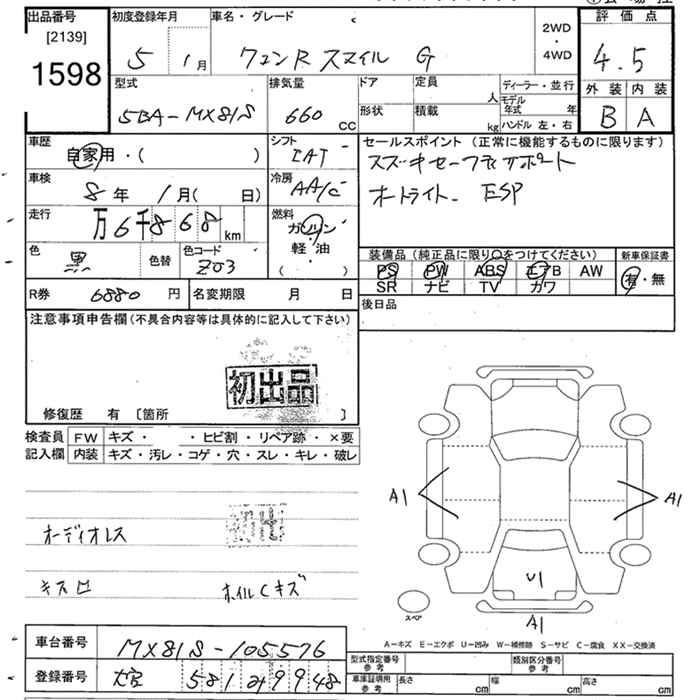 出品番号 初度登録年月 車名・グレード 評価点
[2139] 5 1月 ワゴンR スマイル G 2WD・4WD 4.5
1598 型式 排気量 ドア 定員 人 ディーラー・並行 外装 内装
5BA-MX81S 660 CC 形状 積載 kg モデル年式 年 ハンドル 左・右 B A
車歴 シフト セールスポイント (正常に機能するものに限ります)
自家用・( ) IAT スズキセーフティサポート
車検 8年 1月( 日) 冷房 AA/C オートライト ESP
走行 万6千868 km 燃料 ガソリン
軽・油
( )
色 黒 色替 色コード Z03 装備品 (純正品に限り○をつけてください) 新車保証書
PS PW ABS エアB AW 有・無
SR ナビ TV カワ
R券 6880 円 名変期限 月 日 後日品
注意事項申告欄 (不具合内容等は具体的に記入して下さい)
初出品
修復歴 有 〔箇所 〕
検査員 FW キズ・ ・ヒビ割・リペア跡・×要
記入欄 内装 キズ・汚レ・コゲ・穴・スレ・キレ・破レ
A1 A1
オーディオレス 初出
キズロ ホイルCキズ U1
スペア A1
A-キズ E-エクボ U-凹み W-補修跡 S-サビ C-腐食 XX-交換済
車台番号 MX81S-105576 型式指定番号 参考 類別区分番号 参考
登録番号 581 9948 車庫証明用 参考 長さ cm 幅 cm 高さ cm